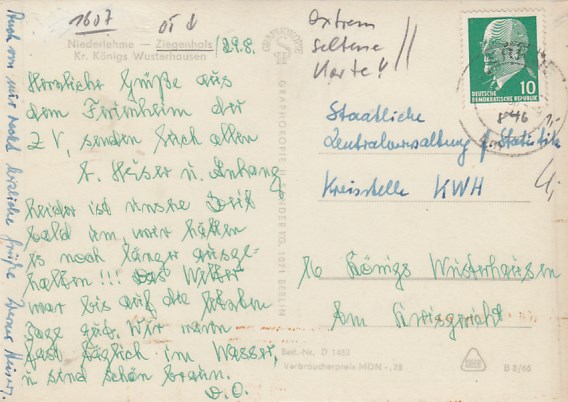 1607
Niederlehme — Ziegenhals /29.8.
Kr. Königs Wusterhausen
Herzliche Grüße aus
dem Ferienheim der
ZV, senden Euch allen
E. Heiser u. Anhang
Leider ist unsre Zeit
bald um, wir hätten
es noch länger ausge-
halten!!! Das Wetter
war bis auf die letzten
Tage gut. Wir waren
fast täglich im Wasser,
u. sind schön braun.
D.O.
Auch von mir recht herzliche Grüße
GRAPHOKOPIE
GRAPHOKOPIE H. SANDER KG, 1071 BERLIN
extrem
seltene
Karte!
10
DEUTSCHE
DEMOKRATISCHE REPUBLIK
Staatliche
Zentralverwaltung f. Statistik
Kreisstelle KWH
16 Königs Wusterhausen
Am Kreisgericht
Best.-Nr. D 1453
Verbraucherpreis MDN -,25
B 2/66